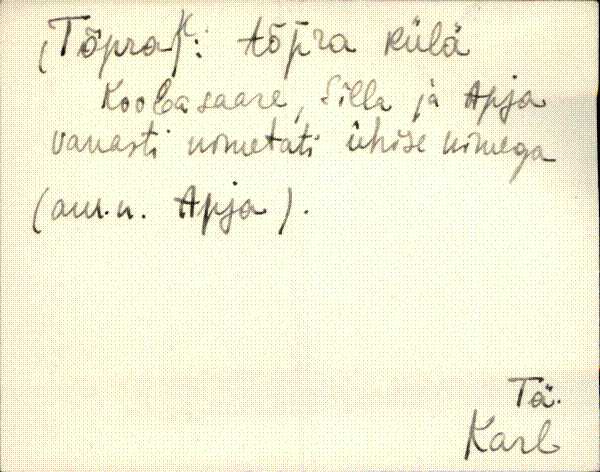 (Tõpra)k: tõp̄ra külä
Koolasaare, Silla ja Apja
vanasti nimetati ühise nimega
(am.n. Apja).
Tä.
Karl